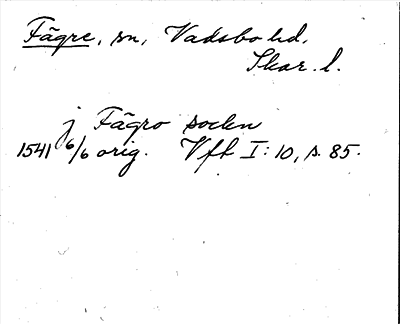 Fägre, sn, Vadsbo hd,
Skar. l.
j Fägro sockn
1541 6/6 orig. Vft I: 10, s. 85.